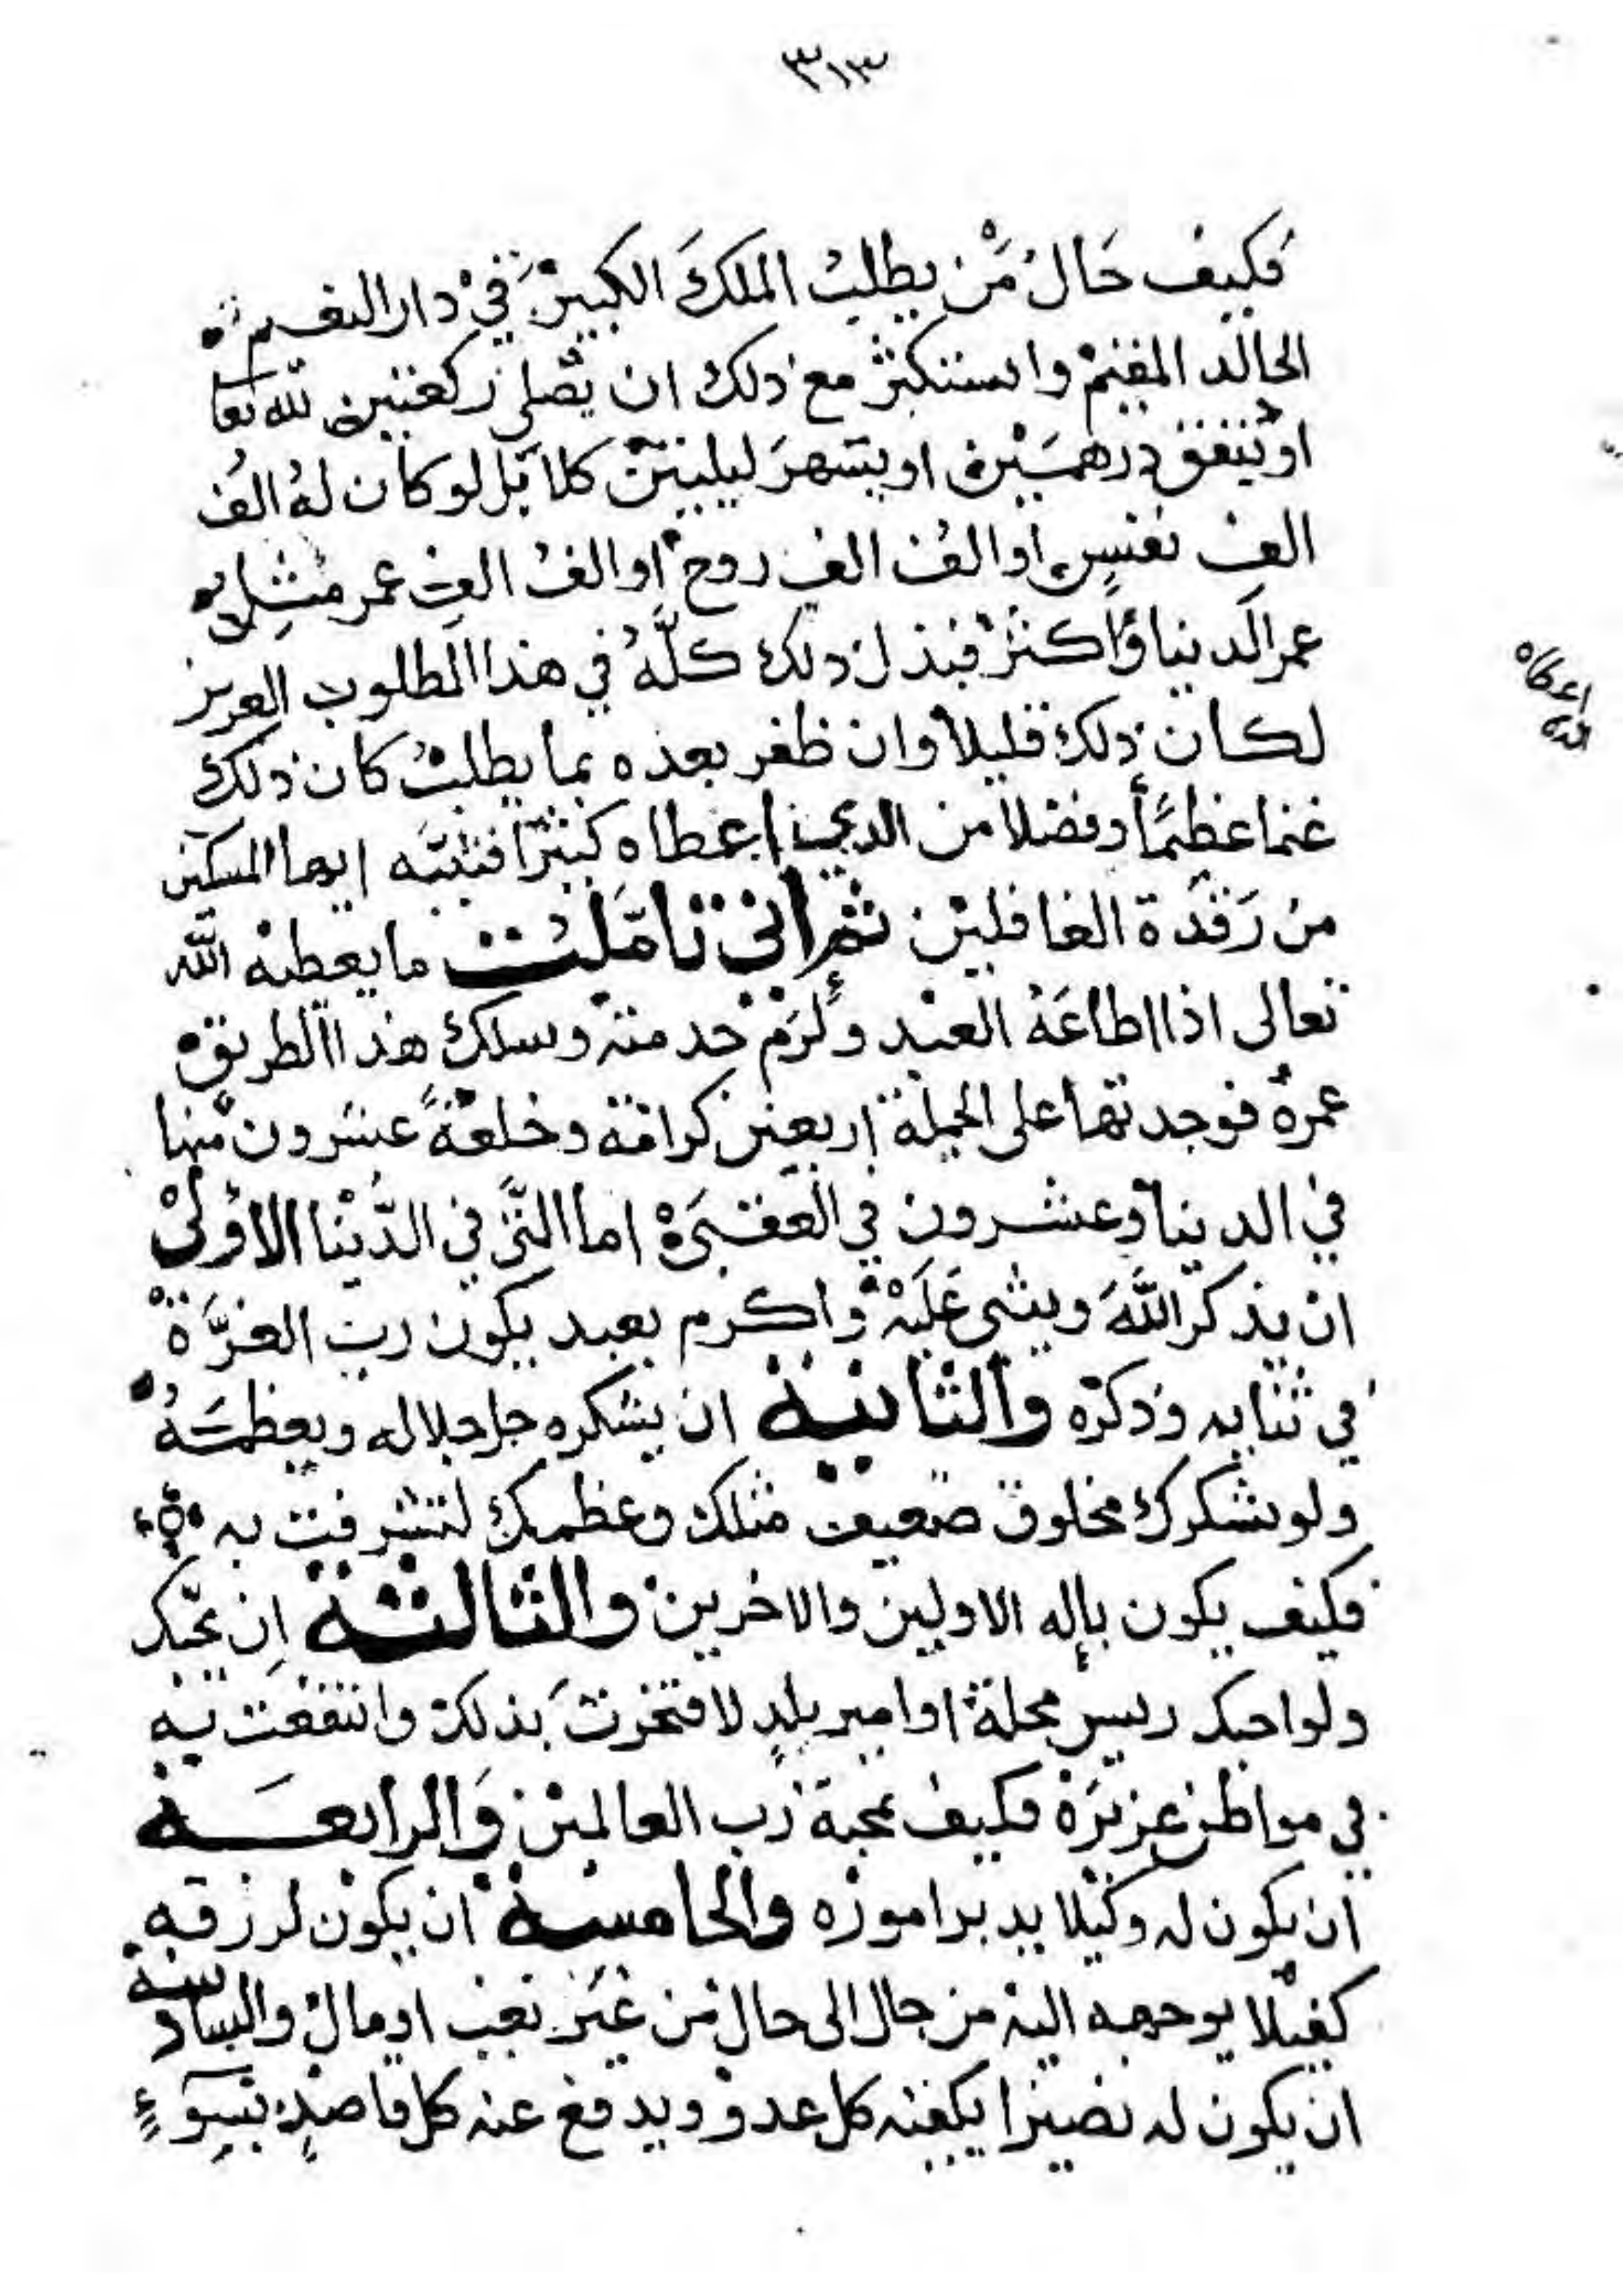 ٣١٣
فكيف حَالُ مَّن يطلبُ الملكَ الكبيرَ في دار النعيم
الخالد المقيم وايستكثر مع ذلك ان يصلي ركعتين لله تعا
او ينفق درهمين او يسهرَ ليلتين كلا بَل لو كان لهُ الفُ
الفِ نفسٍ او الفُ الفِ روح او الفُ الفِ عمر مثل
عمر الدنيا وَاكثر فبذل ذلك كلَّهُ في هذا المطلوب العزيز
لكان ذلك قليلاً وان ظفر بعده بما يطلبُ كان ذلك
غنما عظيمًا وفضلا من الذي اعطاه كثيرًا فتنبَّه ايها المسكين
من رَقدَة الغافلين ثم اني تامَّلت ما يعطيه الله
تعالى اذا اطاعَهُ العبد ولزم خدمته وسلك هذا الطريق
عمرهُ فوجدتها على الجملة اربعين كرامة وخلعةً عشرون منها
في الدنيا وعشرون في العقبَى اما التي في الدُّنْيا الاولى
ان يذكر اللهَ ويثني عَلَيْه واكرم بعبد يكون رب العزَّة
في ثنايه وذكره والثانية ان يشكره جل جلاله ويعظمَهُ
ولو شكرك مخلوق ضعيف مثلك وعظمك لتشرفت به
فكيف يكون بإله الاولين والاخرين والثالثة ان يحبك
ولو احبك رييس محلة او امير بلدٍ لافتخرتَ بذلك وانتفعت به
في مواطن عزيزَة فكيف بمحبة رب العالمين وَالرابعَة
ان يكون له وكيلا يدبر اموره والخامسة ان يكون لرزقه
كفيلا يوجهه اليه من حال الى حال من غير تعب او مال والسادسة
ان يكون له نصيرا يكفيه كل عدو ويدفع عنه كل قاصدٍ بسوءٍ